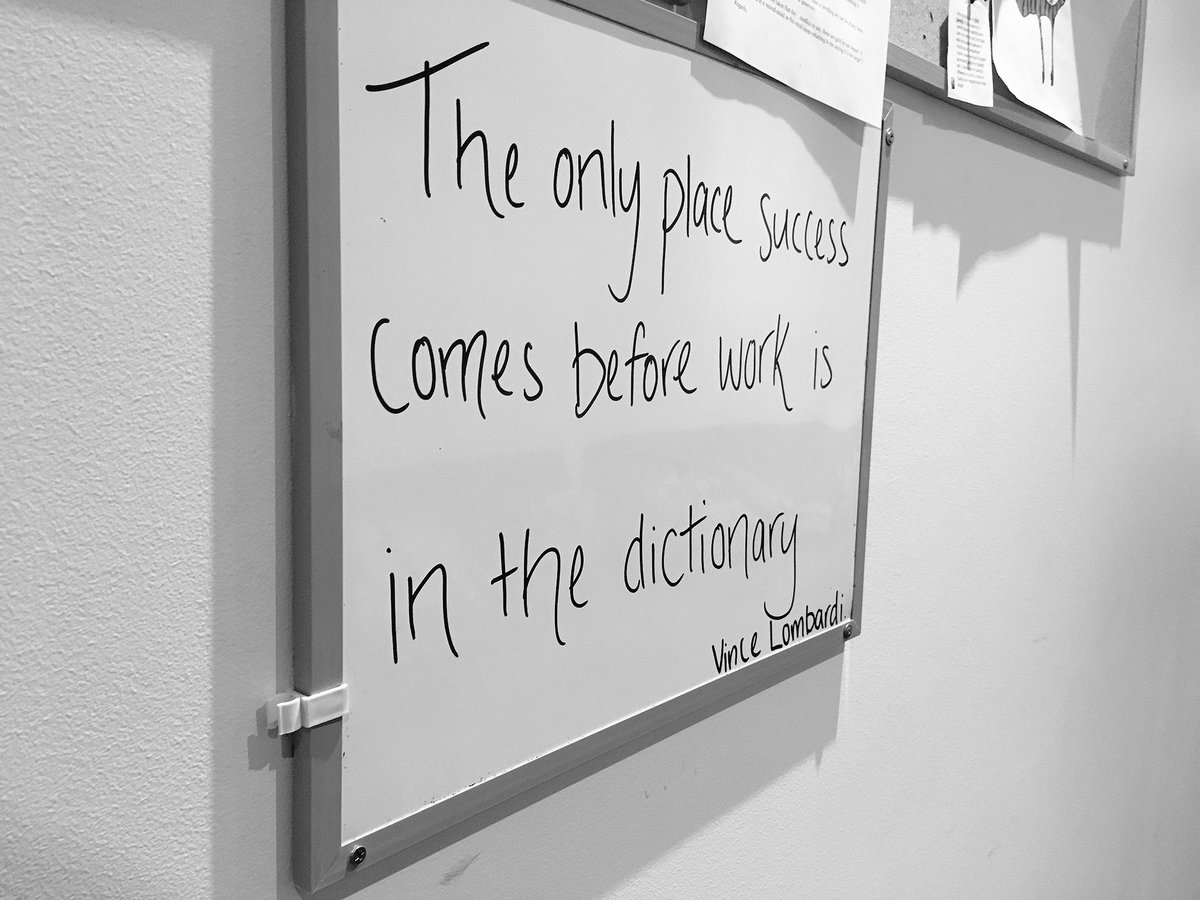 The only place success
comes before work is
in the dictionary
Vince Lombardi